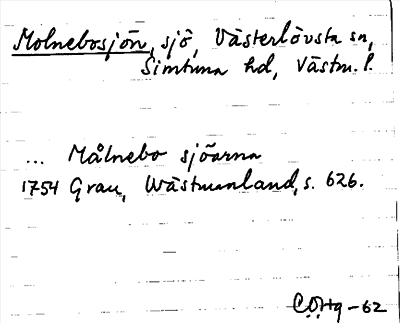 Molnebosjön, sjö, Västerlövsta sn,
Simtuna hd, Västm. l.
... Målnebo sjöarna
1754 Grau, Wästmanland, s. 626.
C.O.Hg-62